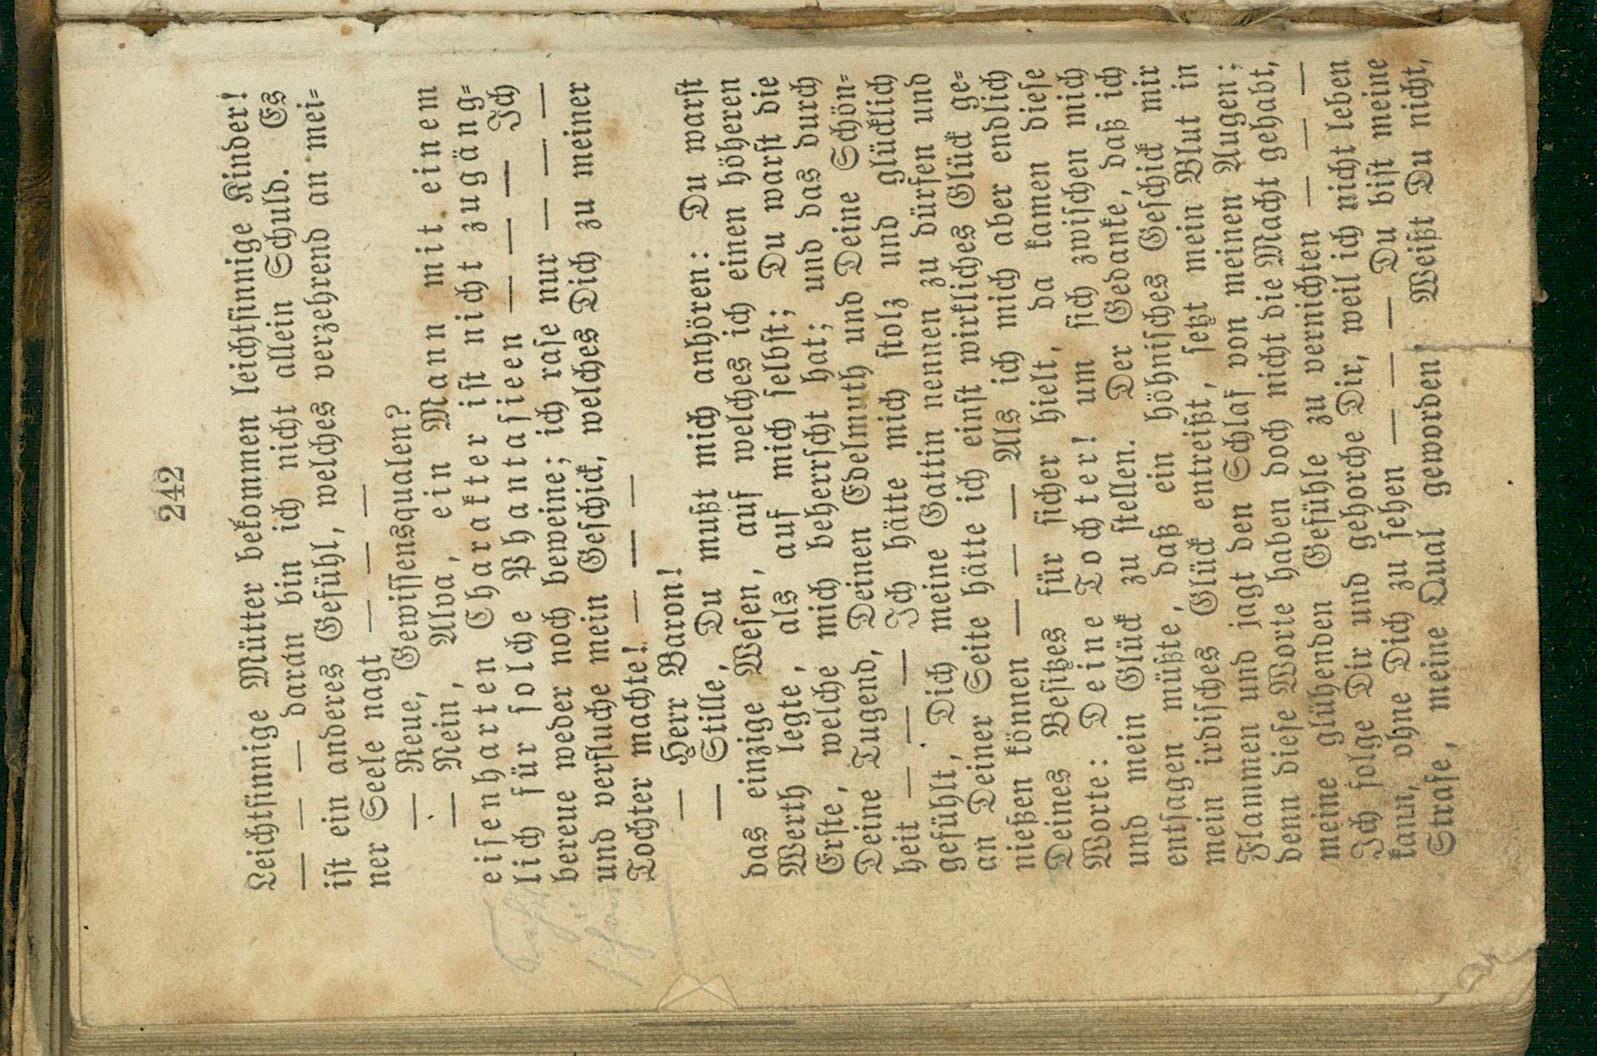 242
Leichtsinnige Mütter bekommen leichtsinnige Kinder!
— — — daran bin ich nicht allein Schuld. Es
ist ein anderes Gefühl, welches verzehrend an mei-
ner Seele nagt — — — —
— Reue, Gewissensqualen?
— Nein, Alva, ein Mann mit einem
eisenharten Charakter ist nicht zugäng-
lich für solche Phantasieen — — — Ich
bereue weder noch beweine; ich rase nur — — —
und verfluche mein Geschick, welches Dich zu meiner
Tochter machte! — — — —
— Herr Baron!
— Stille, Du mußt mich anhören: Du warst
das einzige Wesen, auf welches ich einen höheren
Werth legte, als auf mich selbst; Du warst die
Erste, welche mich beherrscht hat; und das durch
Deine Tugend, Deinen Edelmuth und Deine Schön-
heit — — — Ich hätte mich stolz und glücklich
gefühlt, Dich meine Gattin nennen zu dürfen und
an Deiner Seite hätte ich einst wirkliches Glück ge-
nießen können — — — Als ich mich aber endlich
Deines Besitzes für sicher hielt, da kamen diese
Worte: Deine Tochter! um sich zwischen mich
und mein Glück zu stellen. Der Gedanke, daß ich
entsagen müßte, daß ein höhnisches Geschick mir
mein irdisches Glück entreißt, setzt mein Blut in
Flammen und jagt den Schlaf von meinen Augen;
denn diese Worte haben doch nicht die Macht gehabt,
meine glühenden Gefühle zu vernichten — — —
Ich folge Dir und gehorche Dir, weil ich nicht leben
kann, ohne Dich zu sehen — — — Du bist meine
Strafe, meine Qual geworden! Weißt Du nicht,